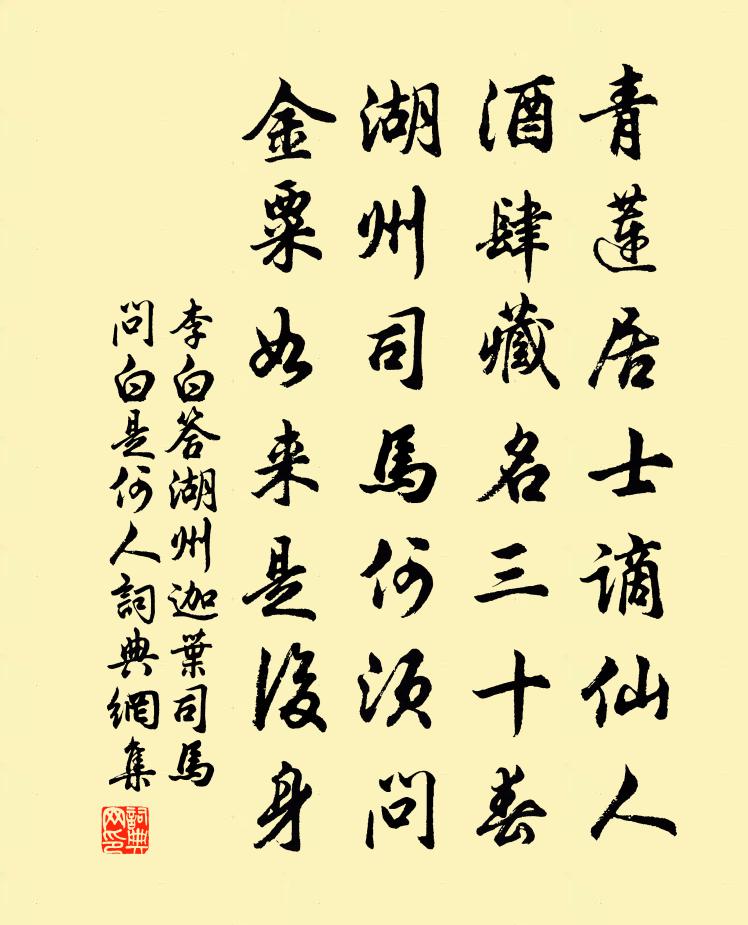 青蓮居士謫仙人
酒肆藏名三十春
湖州司馬何須問
金粟如来是後身
李白答湖州迦葉司馬
問白是何人詞典網集
詞典网印